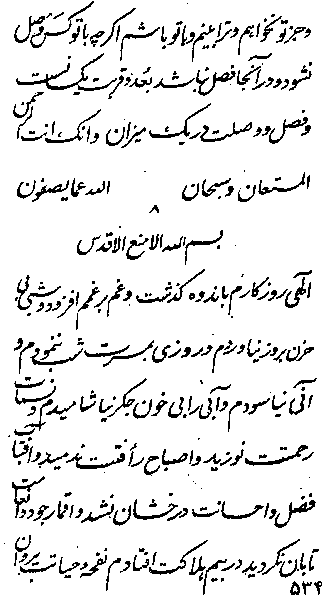 و جز تو نخواهم و ترا بینم و با تو باشم اگرچه با تو کس وصل
نشود و در آنجا فصل نباشد بعد و قربت یکسانست
و فصل و وصلت در یک میزان و انک انت الرحمن
المستعان و سبحان الله عما یصفون
۸
بسم الله الامنع الاقدس
الهی روزگارم باندوه گذشت و غم بر غمم افزود و شبی بی
حزن بروز نیاوردم و روزی بمسرت شب ننمودم و
آنی نیاسودم و آبی را بی خون جگر نیاشامیدم و نسمات
رحمتت نوزید و اصباح رأفتت ندمید و آفتاب
فضل و احسانت درخشان نشد و اقمار جود و
تابان نگردید در بیم هلاکت افتادم نفحه حیاتت
۵۳۴